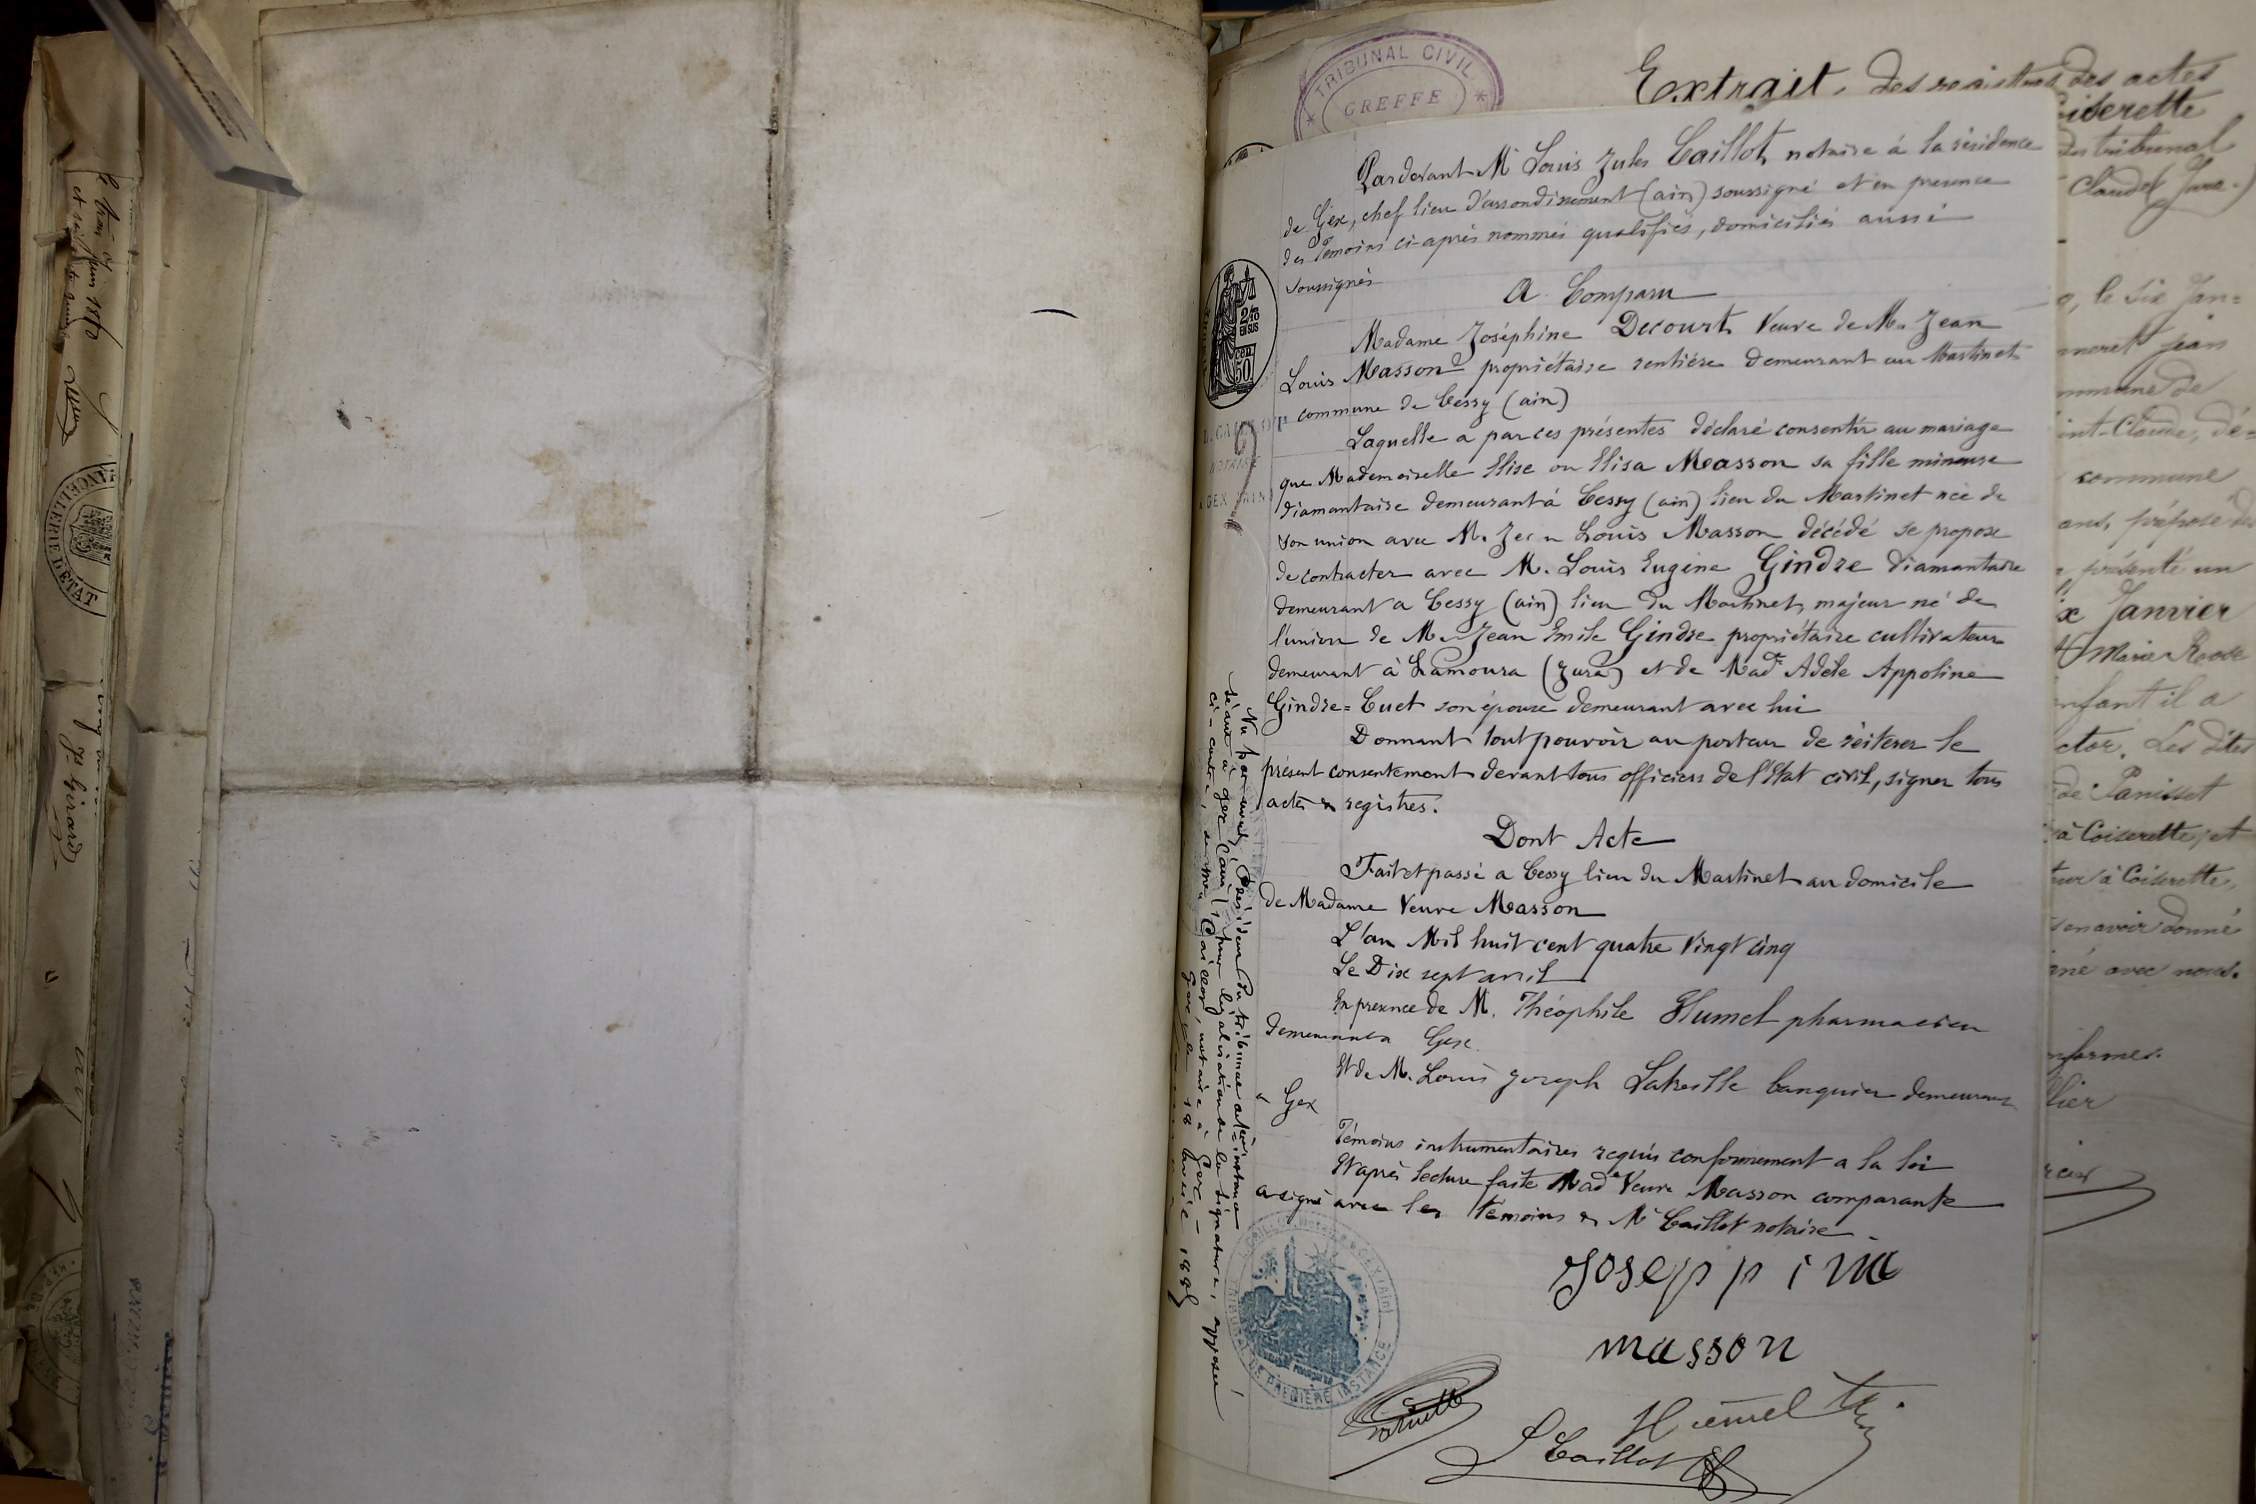 TRIBUNAL CIVIL
GREFFE
Extrait des registres des actes
Coiserette
du tribunal
Claude Jura.)
Pardevant Me Louis Jules Caillot, notaire à la résidence
de Gex, chef lieu d'arrondissement (ain) soussigné et en présence
des Témoins ci-après nommés qualifiés, domiciliés aussi
soussignés
A Comparu
Madame Joséphine Decourt, Veuve de M. Jean
Louis Masson propriétaire rentière demeurant au Martinet
commune de Cessy (ain)
Laquelle a par ces présentes déclaré consentir au mariage
que Mademoiselle Elise ou Elisa Masson sa fille mineure
diamantaire demeurant à Cessy (ain) lieu du Martinet née de
son union avec M. Jean Louis Masson décédé se propose
de contracter avec M. Louis Eugène Gindre diamantaire
demeurant a Cessy (ain) lieu du Martinet, majeur né de
l'union de M. Jean Emile Gindre propriétaire cultivateur
demeurant à Lamoura (Jura) et de Made Adèle Appoline
Gindre=Cuet son épouse demeurant avec lui
Donnant tout pouvoir au porteur de réiterer le
présent consentement devant tous officiers de l'Etat civil, signer tous
actes & registres.
Dont Acte
Fait et passé a Cessy lieu du Martinet au domicile
de Madame Veuve Masson
L'an Mil huit cent quatre Vingt cinq
Le Dix sept avril
En présence de M. Théophile Humel pharmacien
demeurant à Gex.
Et de M. Louis Joseph demeurant
à Gex
Témoins instrumentaires requis conformement a la loi
Et après lecture faite Made Veuve Masson comparante
a signé avec les témoins & Me Caillot notaire.
Joseppine
masson
Humel
L Caillot
2/10
EN SUS
50 cen
NOTAIRE
GEX (AIN)
Vu par nous, Président du tribunal de 1ère instance
séant à Gex (ain) pour légalisation de la signature, apposée
ci-contre, de Me Caillot, notaire à Gex
Gex le 18 avril 1885
TRIBUNAL DE PREMIÈRE INSTANCE
GEX (AIN)
le six Jan=
Jean
commune de
Saint-Claude, dé=
commune
ans, préposé des
présenté un
Janvier
Marie Rose
enfant il a
Les dites
de Panisset
à Coiserette, et
à Coiserette,
en avoir donné
signé avec nous.
CHANCELLERIE D'ÉTAT
Juin 18
Jh Girard